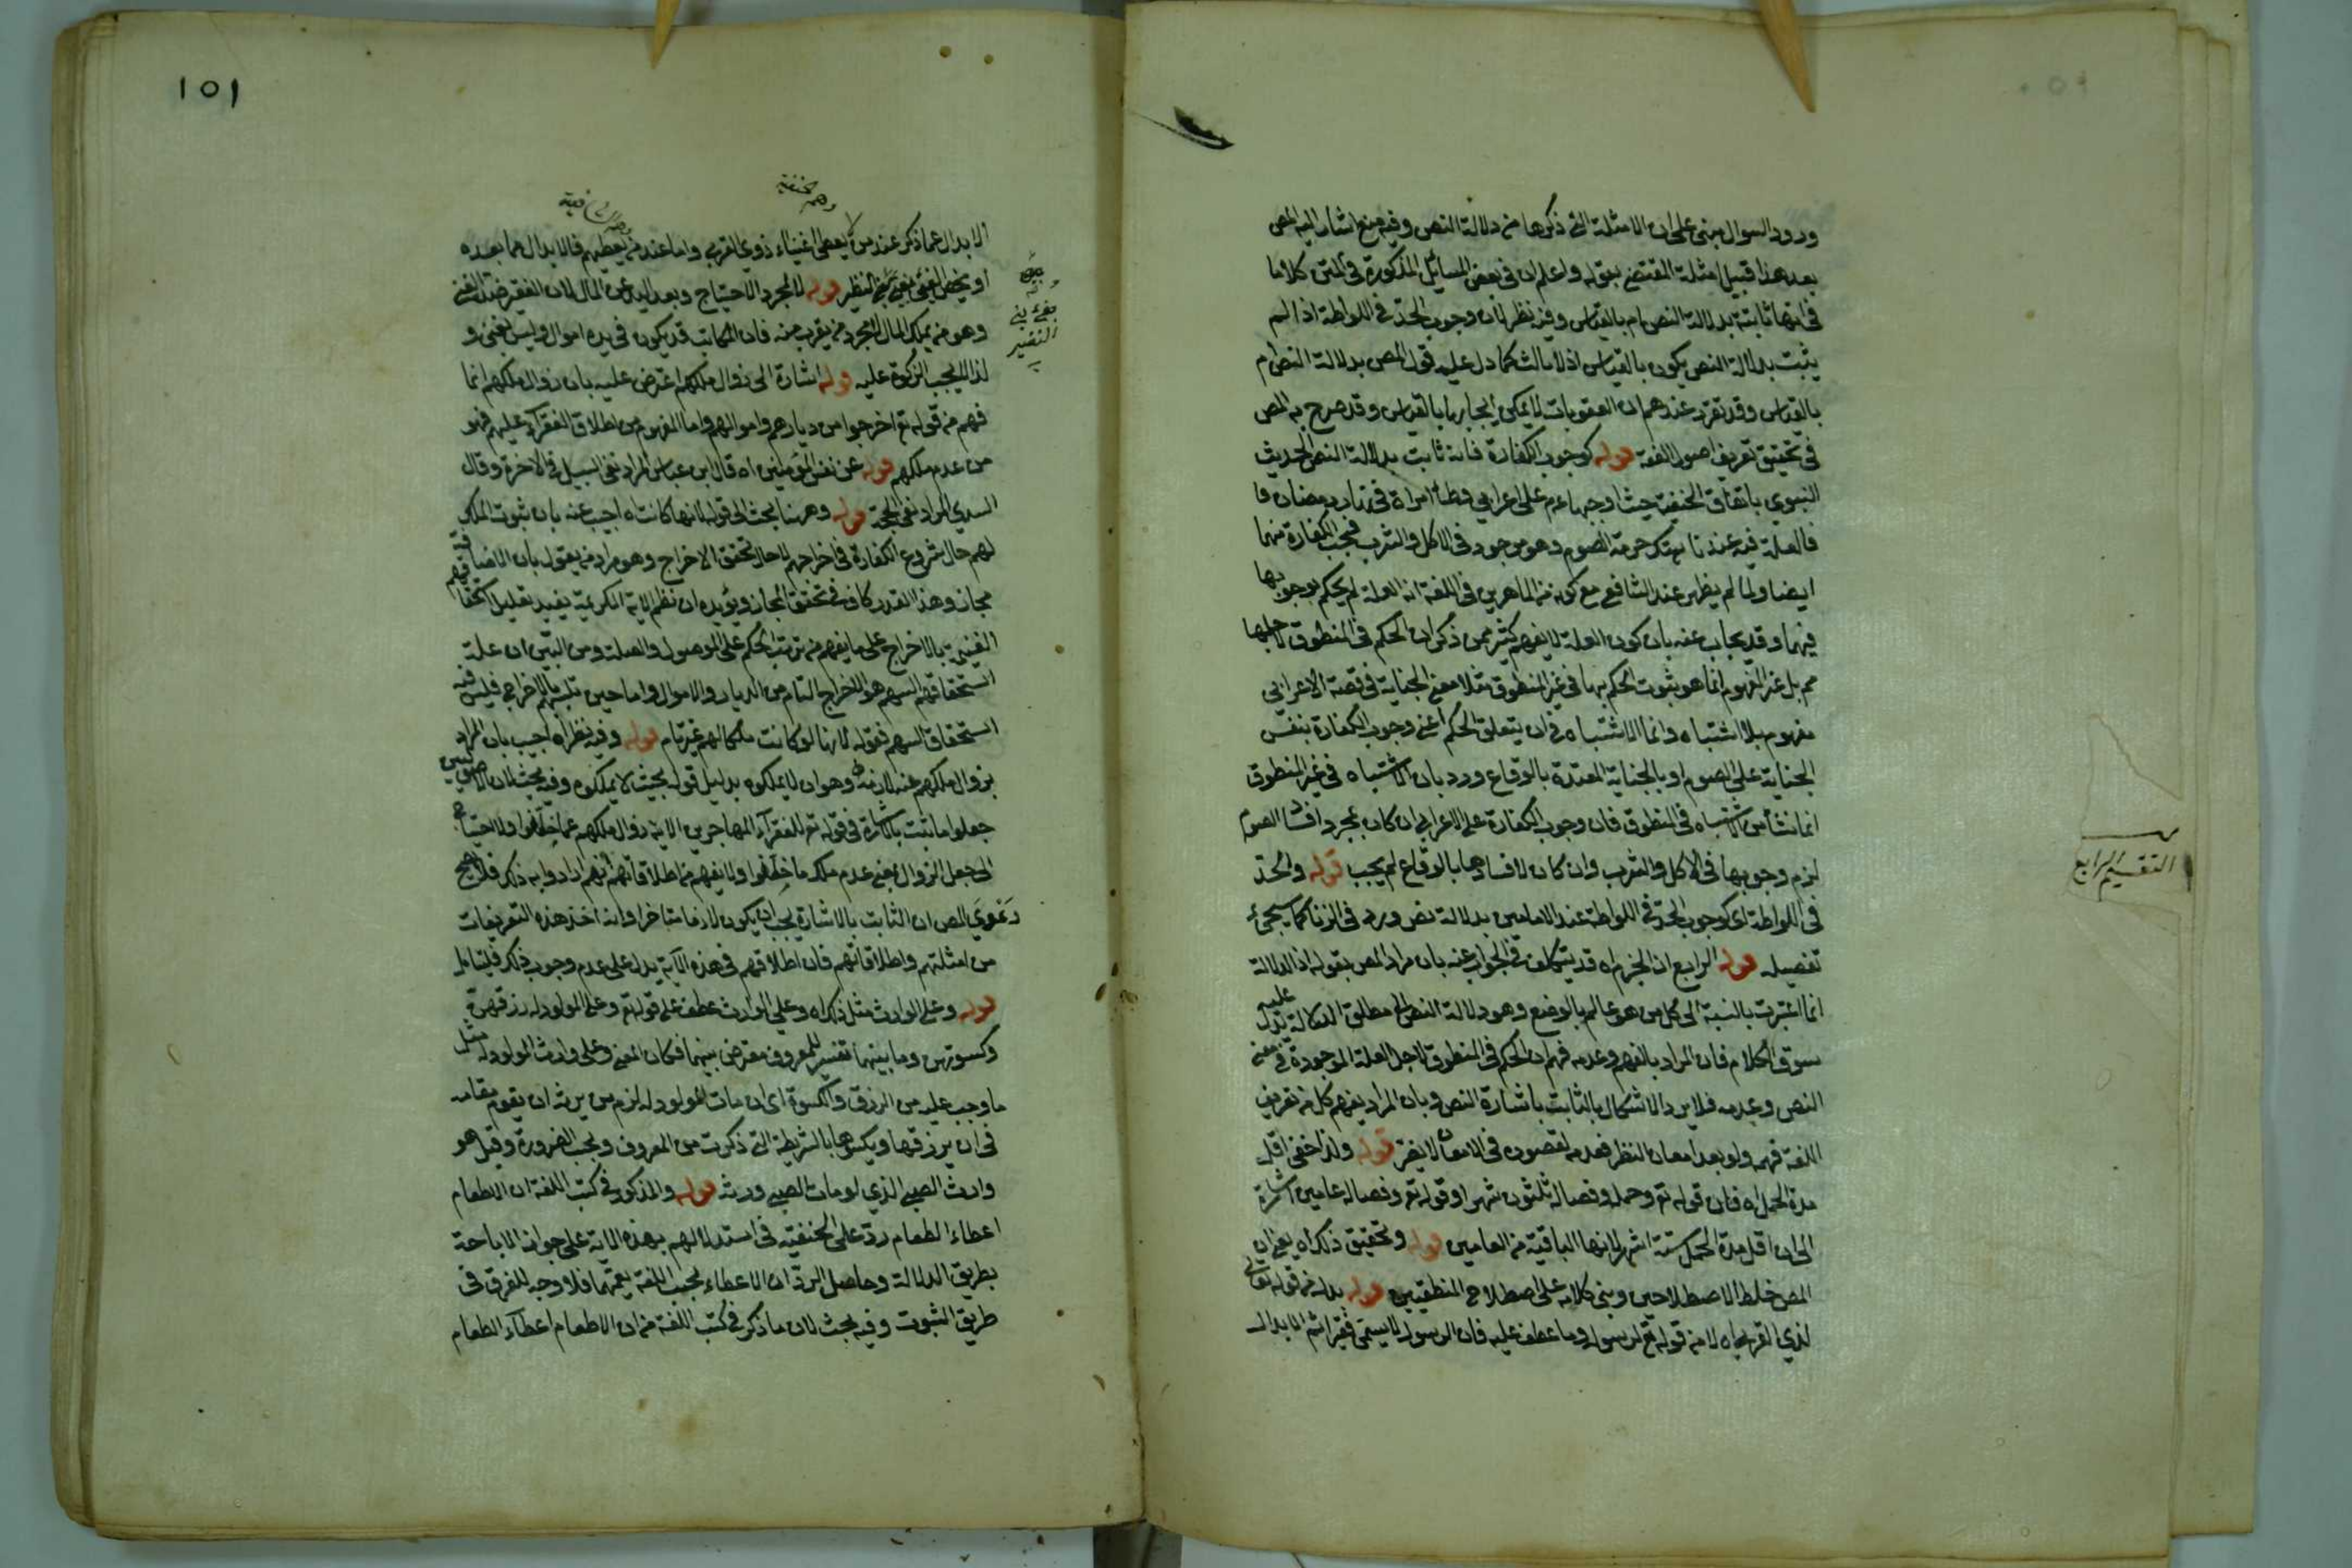 ورود السوال مبنى على ان الامثلة التى ذكرها من دلالة النص وفيه منع اشار اليه المص
بعد هذا قبيل امثلة المقتضى بقوله واعلم ان فى بعض المسائل المذكورة فى المتن كلاما
فى انها ثابتة بدلالة النص ام بالقياس وفيه نظر لان وجوب الحد فى اللواطة اذا لم
يثبت بدلالة النص يكون بالقياس اذ لا ثالث كما دل عليه قول المص بدلالة النص ام
بالقياس وقد تقرر عندهم ان العقوبات لا يمكن ايجابها بالقياس وقد صرح به المص
فى تحقيق تعريف اصول الفقه قوله كوجوب الكفارة فانه ثابت بدلالة النص الحديث
النبوي باتفاق الحنفية حيث اوجبها عم على اعرابي وطئ امراة فى نهار رمضان
فالعلة فيه عندنا هتك حرمة الصوم وهو موجود فى الاكل والشرب فتجب الكفارة فيهما
ايضا ولما لم يظهر عند الشافعى مع كونه من الماهرين فى اللغة ان العلة لم يحكم بوجوبها
فيهما وقد يجاب عنه بان كون العلة لا يفهم كثير ممن ذكر ان الحكم فى المنطوق لاجلها
مم بل غير المفهوم انما هو ثبوت الحكم بها فى غير المنطوق مثلا معنى الجناية فى قصة الاعرابي
مفهوم بلا اشتباه وانما الاشتباه فى ان يتعلق الحكم اعنى وجوب الكفارة بنفس
الجناية على الصوم او بالجناية المقيدة بالوقاع ورد بان الاشتباه فى غير المنطوق
انما نشأ من الاشتباه فى المنطوق فان وجوب الكفارة على الاعرابى ان كان بمجرد افساد الصوم
لزم وجوبها فى الاكل والشرب وان كان لافسادها بالوقاع لم يجب قوله والحد
فى اللواطة اى كوجوب الحد فى اللواطة عند الامامين بدلالة نص ورد فى الزنا كما سيجئ
تفصيله قوله الرابع ان الجزم اه قد يتكلف فى الجواب عنه بان مراد المص بقوله ان الدلالة
انما اعتبرت بالنسبة الى كل من هو عالم بالوضع وهو دلالة النص لا مطلق الدلالة يدل عليه
سوق الكلام فان المراد بالفهم وعدمه فهم ان الحكم فى المنطوق لاجل العلة الموجودة فى معنى
النص وعدمه فلا يرد الاشكال بالثابت باشارة النص وبان المراد بفهم كل من يعرف
اللغة فهمه ولو بعد امعان النظر فعدمه لقصوره فى الامعان لا يضر قوله ولذا خفى اقل
مدة الحمل اه فان قوله تع وحمله وفصاله ثلثون شهرا وقوله تع وفصاله عامين اشارة
الى ان اقل مدة الحمل ستة اشهر لانها الباقية من العامين قوله وتحقيق ذلك اه يعنى ان
المص خلط الاصطلاحين وبنى كلامه على اصطلاح المنطقيين قوله بدل من قوله تعالى
لذي القربى اه لا من قوله تع للرسول وما عطف عليه فان الرسول لا يسمى فقيرا ثم الابدال
التقسيم الرابع
١٥١
وهم الحنفية
وهم الشافعية
الابدال عما ذكر عند من لا يعطى اغنياء ذوي القربى واما عند من يعطيهم فالابدال مما بعده
قوله لا لمجرد الاحتياج وبعد اليد عن المال لان الفقير ضد الغنى
وهو من يملك المال لا مجرد من يقرب منه فان المكاتب قد يكون فى يده اموال وليس بغنى و
لذا لا يجب الزكوة عليه قوله اشارة الى زوال ملكهم اعترض عليه بان زوال ملكهم انما
فهم من قوله تع اخرجوا من ديارهم واموالهم واما المفهوم من اطلاق الفقراء عليهم فهو
من عدم ملكهم قوله عن نفس المؤمنين اه قال ابن عباس المراد نفى السبيل فى الاخرة وقال
السدي المراد نفى الحجة قوله وههنا بحث الى قوله لانها كانت اه اجيب عنه بان ثبوت الملك
لهم حال شروع الكفارة فى اخراجهم لا حال تحقق الاخراج وهو مراد من يقول بان الاضافة
مجاز وهذا القدر كاف فى تحقق المجاز ويؤيده ان نظم الاية الكريمة يفيد تعليل استحقاقهم
الغنيمة بالاخراج على ما يفهم من ترتيب الحكم على الموصول والصلة ومن البين ان علة
استحقاقهم السهم هو الاخراج التام من الديار والاموال واما حين تلبسهم بالاخراج فليس فيه
استحقاق السهم فقوله لانها لو كانت ملكا لهم غير تام قوله وفيه نظر اه اجيب بان المراد
بزوال ملكهم عنه لازمه وهو ان لا يملكوه بدليل قوله بحيث لا يملكوه وفيه بحث لان الاصوليين
جعلوا ما يثبت بالاشارة فى قوله تع للفقراء المهاجرين الاية زوال ملكهم عما خلفوا ولا احتياج
الى جعل الزوال بمعنى عدم ملك ما خلفوا ولا يفهم من اطلاقاتهم انهم ارادوا به ذلك فلا يصح
دعوى المص ان الثابت بالاشارة يجب ان يكون لازما متاخرا وانه اخذ هذه التعريفات
من امثلتهم واطلاقاتهم فان اطلاقهم فى هذه الآية يدل على عدم وجوب ذلك فليتامل
قوله وعلى الوارث مثل ذلك اه وعلى الوارث عطف على قوله تع وعلى المولود له رزقهن
وكسوتهن وما بينهما تفسير للمعروف معترض بينهما فكان المعنى وعلى وارث المولود له مثل
ما وجب عليه من الرزق والكسوة اى ان مات المولود له لزم من يرثه ان يقوم مقامه
فى ان يرزقها ويكسوها بالشريطة التى ذكرت من المعروف وتجنب الضرورة وقيل هو
وارث الصبى الذي لو مات الصبى ورثه قوله والمذكور فى كتب اللغة ان الاطعام
اعطاء الطعام رد على الحنفية فى استدلالهم بهذه الاية على جواز الاباحة
بطريق الدلالة وحاصل الرد ان الاعطاء بحسب اللغة يعمهما فلا وجه للفرق فى
طريق الثبوت وفيه بحث لان ما ذكر فى كتب اللغة من ان الاطعام اعطاء الطعام